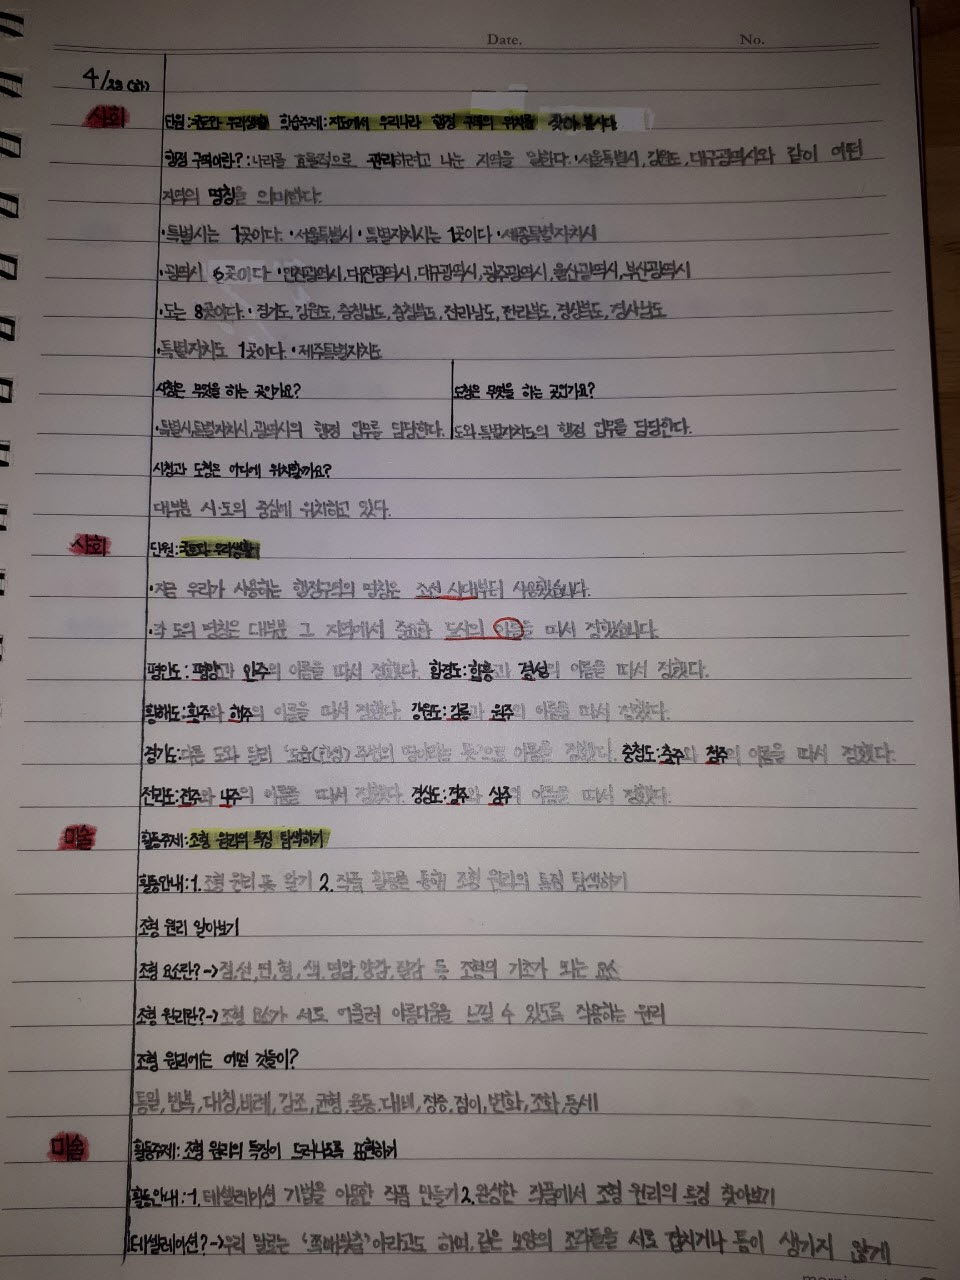 Date. No.
4/28 (화)
사회
단원:국토와 우리생활 학습주제:지도에서 우리나라 행정 구역의 위치를 찾아 봅시다
행정 구역이란?:나라를 효율적으로 관리하려고 나눈 지역을 말한다. ·서울특별시, 강원도, 대구광역시와 같이 어떤
지역의 명칭을 의미한다.
·특별시는 1곳이다. ·서울특별시 ·특별자치시는 1곳이다 ·세종특별자치시
·광역시 6곳이다 ·인천광역시, 대전광역시, 대구광역시, 광주광역시, 울산광역시, 부산광역시
·도는 8곳이다. ·경기도, 강원도, 충청남도, 충청북도, 전라남도, 전라북도, 경상북도, 경상남도
·특별자치도 1곳이다. ·제주특별자치도
시청은 무엇을 하는 곳인가요? 도청은 무엇을 하는 곳인가요?
·특별시,특별자치시, 광역시의 행정 업무를 담당한다. 도와 특별자치도의 행정 업무를 담당한다.
시청과 도청은 어디에 위치할까요?
대부분 시·도의 중심에 위치하고 있다.
사회 단원:국토와 우리생활
·지금 우리가 사용하는 행정구역의 명칭은 조선 시대부터 사용했습니다.
·각 도의 명칭은 대부분 그 지역에서 중요한 도시의 이름을 따서 정했습니다.
평안도:평양과 안주의 이름을 따서 정했다. 함경도:함흥과 경성의 이름을 따서 정했다.
황해도:황주와 해주의 이름을 따서 정했다. 강원도:강릉과 원주의 이름을 따서 정했다.
경기도:다른 도와 달리 '도읍(한성) 주변의 땅이라는 뜻'으로 이름을 정했다. 충청도:충주와 청주의 이름을 따서 정했다.
전라도:전주와 나주의 이름을 따서 정했다. 경상도:경주와 상주의 이름을 따서 정했다.
미술 활동주제:조형 원리의 특징 탐색하기
활동안내:1. 조형 원리 뜻 알기 2. 작품 활동을 통해 조형 원리의 특징 탐색하기
조형 원리 알아보기
조형 요소란?->점,선,면,형,색,명암,양감,질감 등 조형의 기초가 되는 요소
조형 원리란?->조형 요소가 서로 어울려 아름다움을 느낄 수 있도록 작용하는 원리
조형 원리에는 어떤 것들이?
통일, 반복, 대칭,비례, 강조, 균형, 율동, 대비, 점증, 점이, 변화, 조화, 동세
미술 활동주제: 조형 원리의 특징이 드러나도록 표현하기
활동안내:1. 테셀레이션 기법을 이용한 작품 만들기 2.완성한 작품에서 조형 원리의 특징 찾아보기
테셀레이션?->우리 말로는 '쪽매맞춤'이라고도 하며, 같은 모양의 조각들을 서로 겹치거나 틈이 생기지 않게